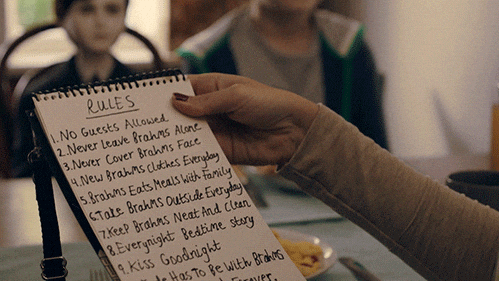 RULES
1. No Guests Allowed
2. Never Leave Brahms Alone
3. Never Cover Brahms Face
4. New Brahms Clothes Everyday
5. Brahms Eats Meals With Family
6. Take Brahms Outside Everyday
7. Keep Brahms Neat And Clean
8. Everynight Bedtime story
9. Kiss Goodnight
Has To Be With Brahms
Forever.